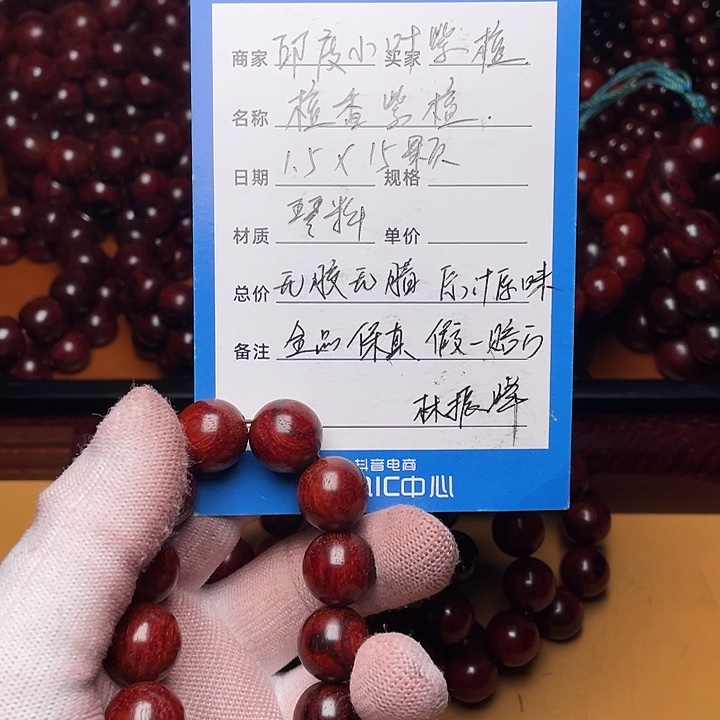 商家 印度小叶紫檀 买家
名称 檀香紫檀.
日期 1.5×15颗 规格
材质 琴料 单价
总价 无胶无腊 原汁原味
备注 全品保真 假一赔万
林振峰
抖音电商
QIC中心